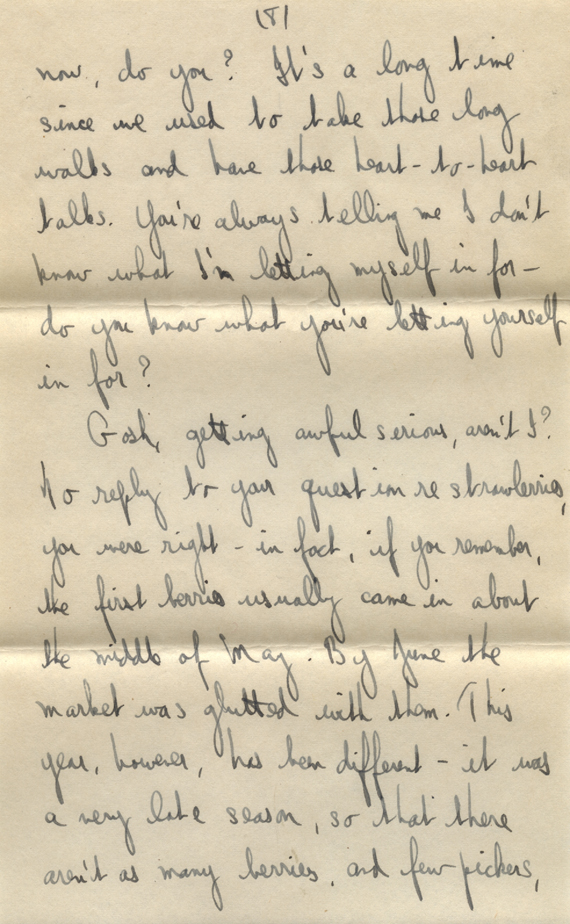 (8)
now, do you? It's a long time
since we used to take those long
walks and have those heart-to-heart
talks. You're always telling me I don't
know what I'm letting myself in for-
do you know what you're letting yourself
in for?
Gosh, getting awful serious, aren't I?
To reply to your question re strawberries,
you were right - in fact, if you remember,
the first berries usually came in about
the middle of May. By June the
market was glutted with them. This
year, however, has been different - it was
a very late season, so that there
aren't as many berries, and few pickers,